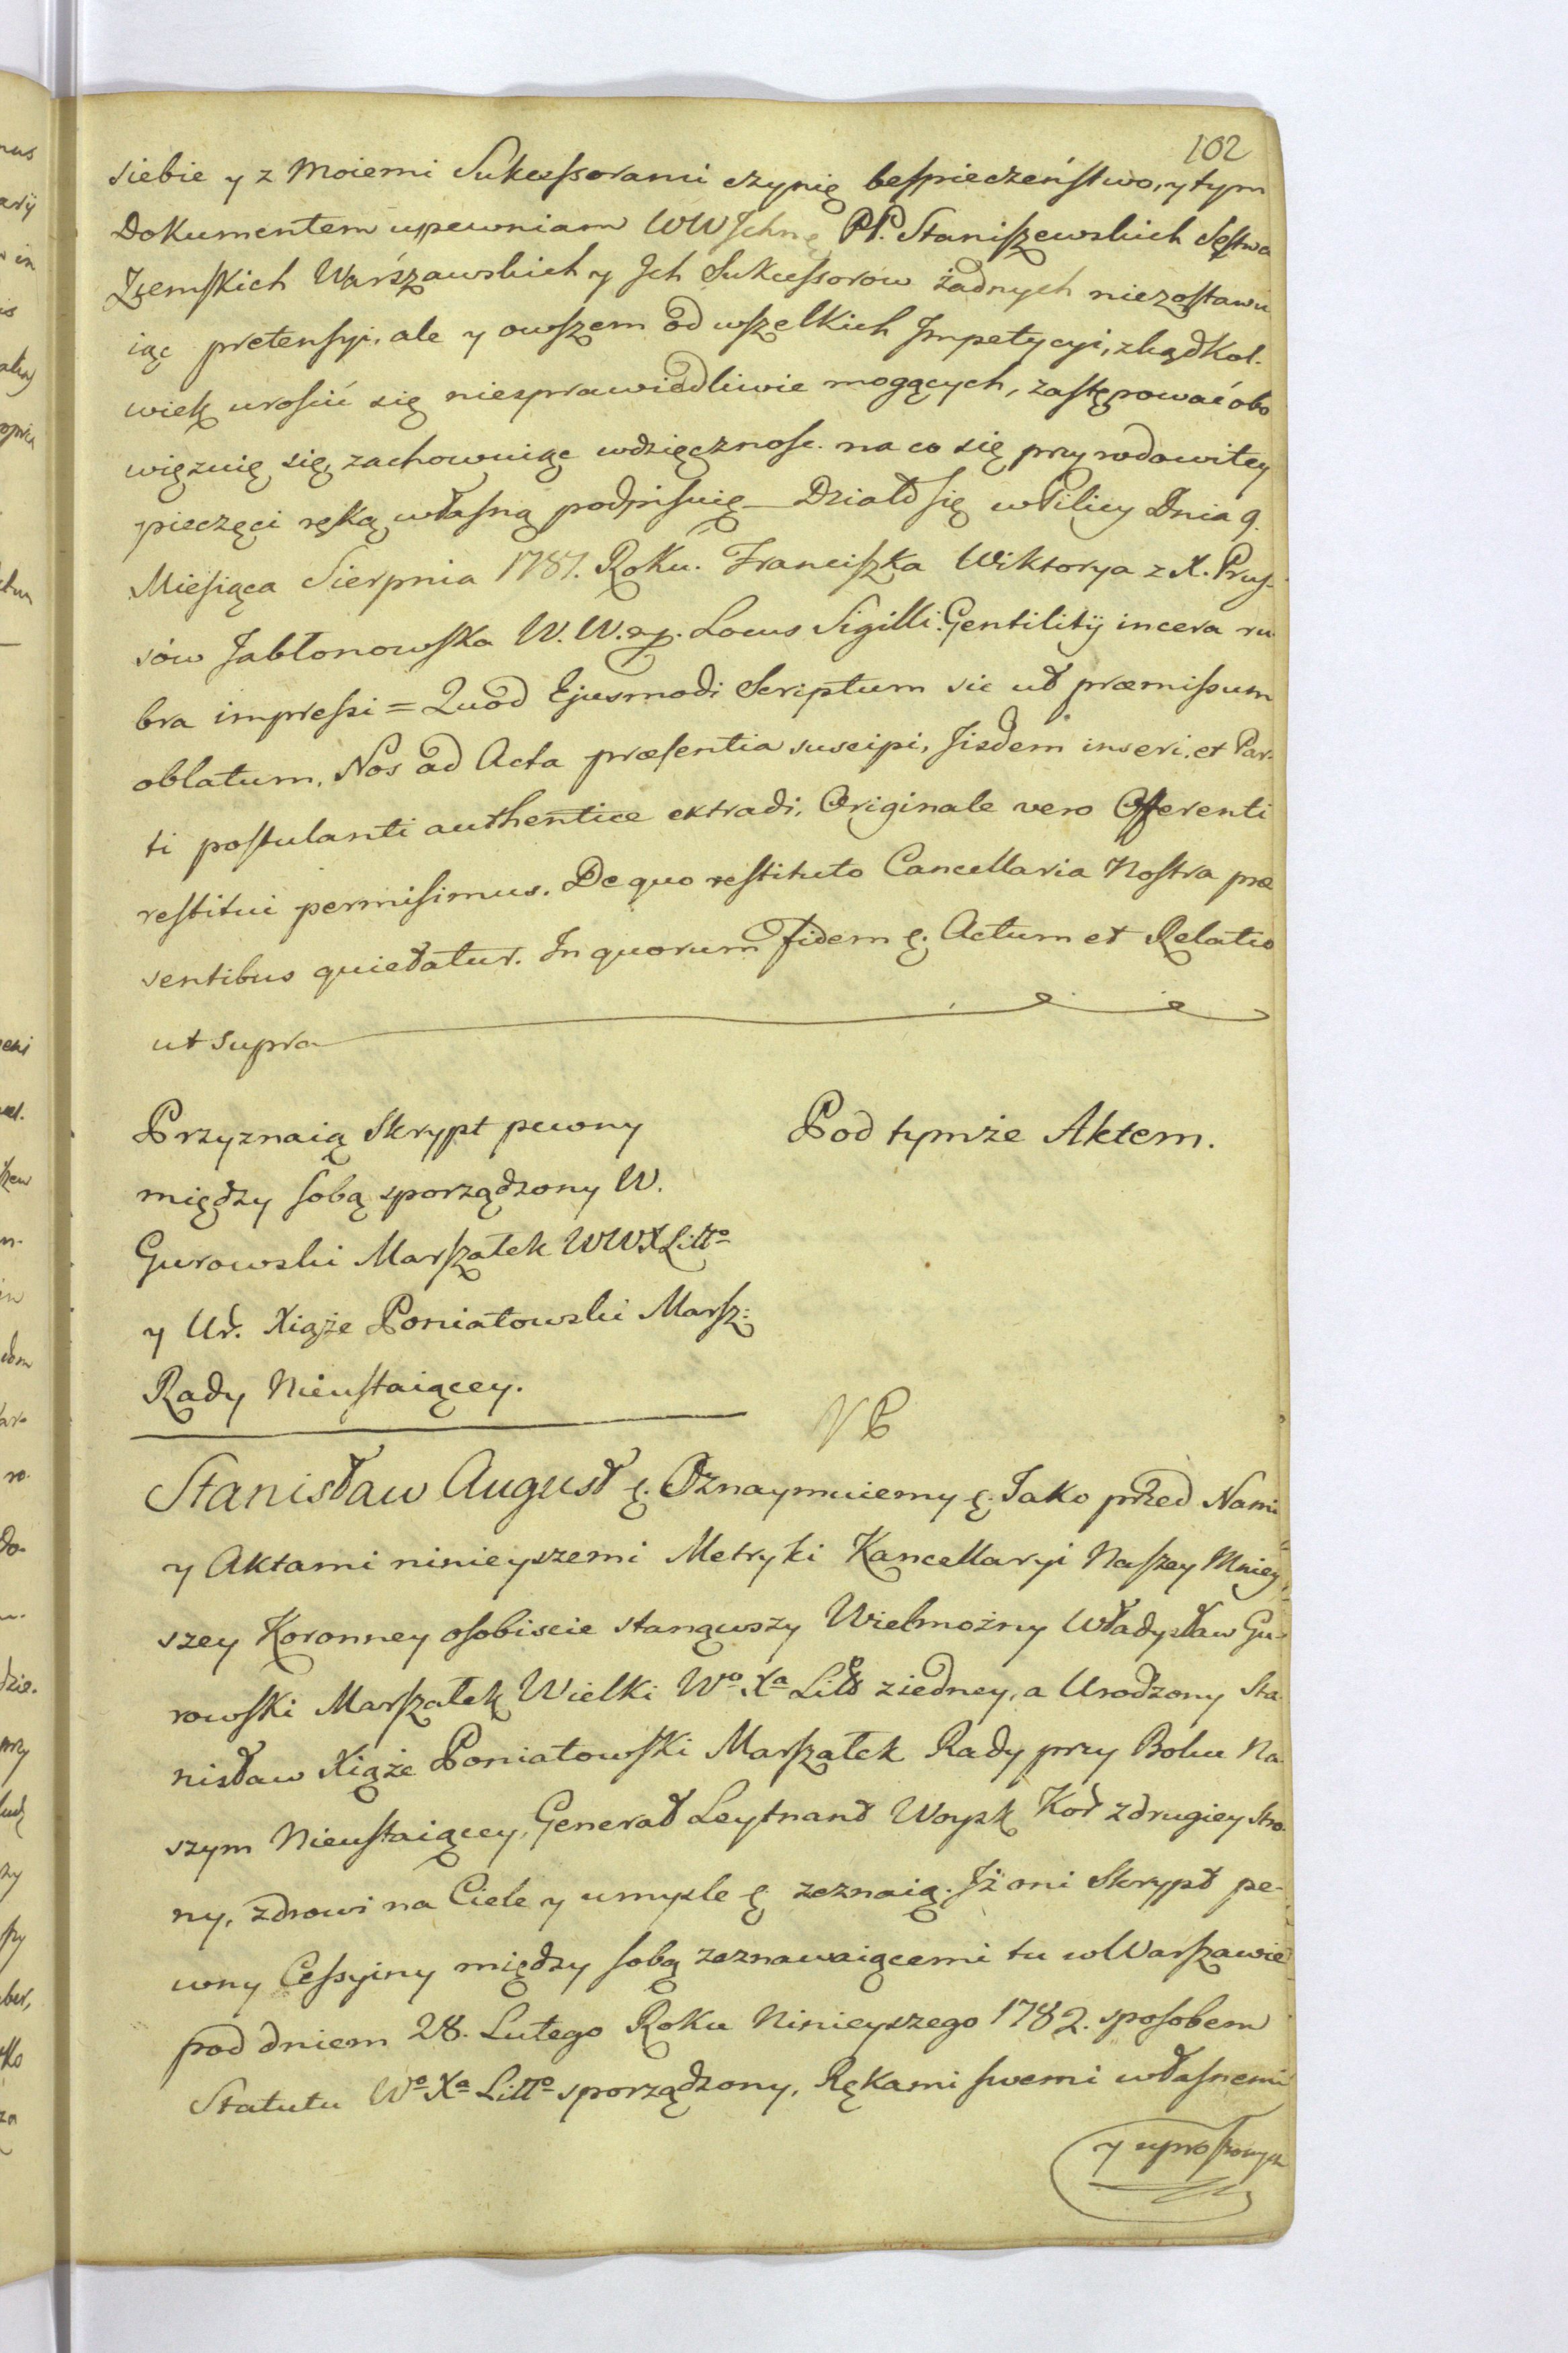 102
siebie y z Moiemi Sukcessorami czynię bespieczeństwo, y tym
Dokumentem upewniam WWJchnę PP. Staniszewskich Sęstwa
Ziemskich Warszawskich y Jch Sukcessorow żadnych niezostawu
iąc pretensyi, ale y owszem od wszelkich Jmpetycyi, zkądkol-
wiek urościć się niesprawiedliwie mogących, zastępować obo
więzuię się, zachowuiąc wdzięcznosc. na co się przy rodowitey
pieczęci ręką własną podpisuię — Działo się w Pilicy Dnia 9.
Miesiąca Sierpnia 1781. Roku. Franciszka Wiktorya z X. Prus-
sów Jabłonowska W. W. Locus Sigilli Gentilitij in cera ru
bra impressi = Quod Ejusmodi Scriptum sic ut præmissum
oblatum, Nos ad Acta præsentia suscipi, Jisdem inseri, et Par-
ti postulanti authentice extradi, Originale vero Offerenti
restitui permisimus. De quo restituto Cancellaria Nostra præ
sentibus quietatur. In quorum fidem &. Actum et Relatio
ut supra
Przyznaią Skrypt pewny
między sobą sporządzony W.
Gurowski Marszałek WWXLitto
y Ur. Xiąże Poniatowski Marsz:
Rady Nieustaiącey.
Pod tymże Aktem.
Stanisław August &. Oznaymuiemy &. Jako przed Nami
y Aktami ninieyszemi Metryki Kancellaryi Naszey Mniey
szey Koronney osobiscie stanąwszy Wielmożny Władysław Gu-
rowski Marszałek Wielki Wo Xa Litt z iedney, a Urodzony Sta-
nisław Xiąże Poniatowski Marszałek Rady przy Boku Na-
szym Nieustaiącey, Generał Leytnant Woysk Kor z drugiey stro-
ny, zdrowi na Ciele y umysle & zeznaią. Jż oni Skrypt pe-
wny Cessyiny między sobą zeznawaiącemi tu w Warszawie
pod dniem 28. Lutego Roku Ninieyszego 1782. sposobem
Statutu Wo Xa Litto sporządzony, Rękami swemi własnemi
y uproszonych